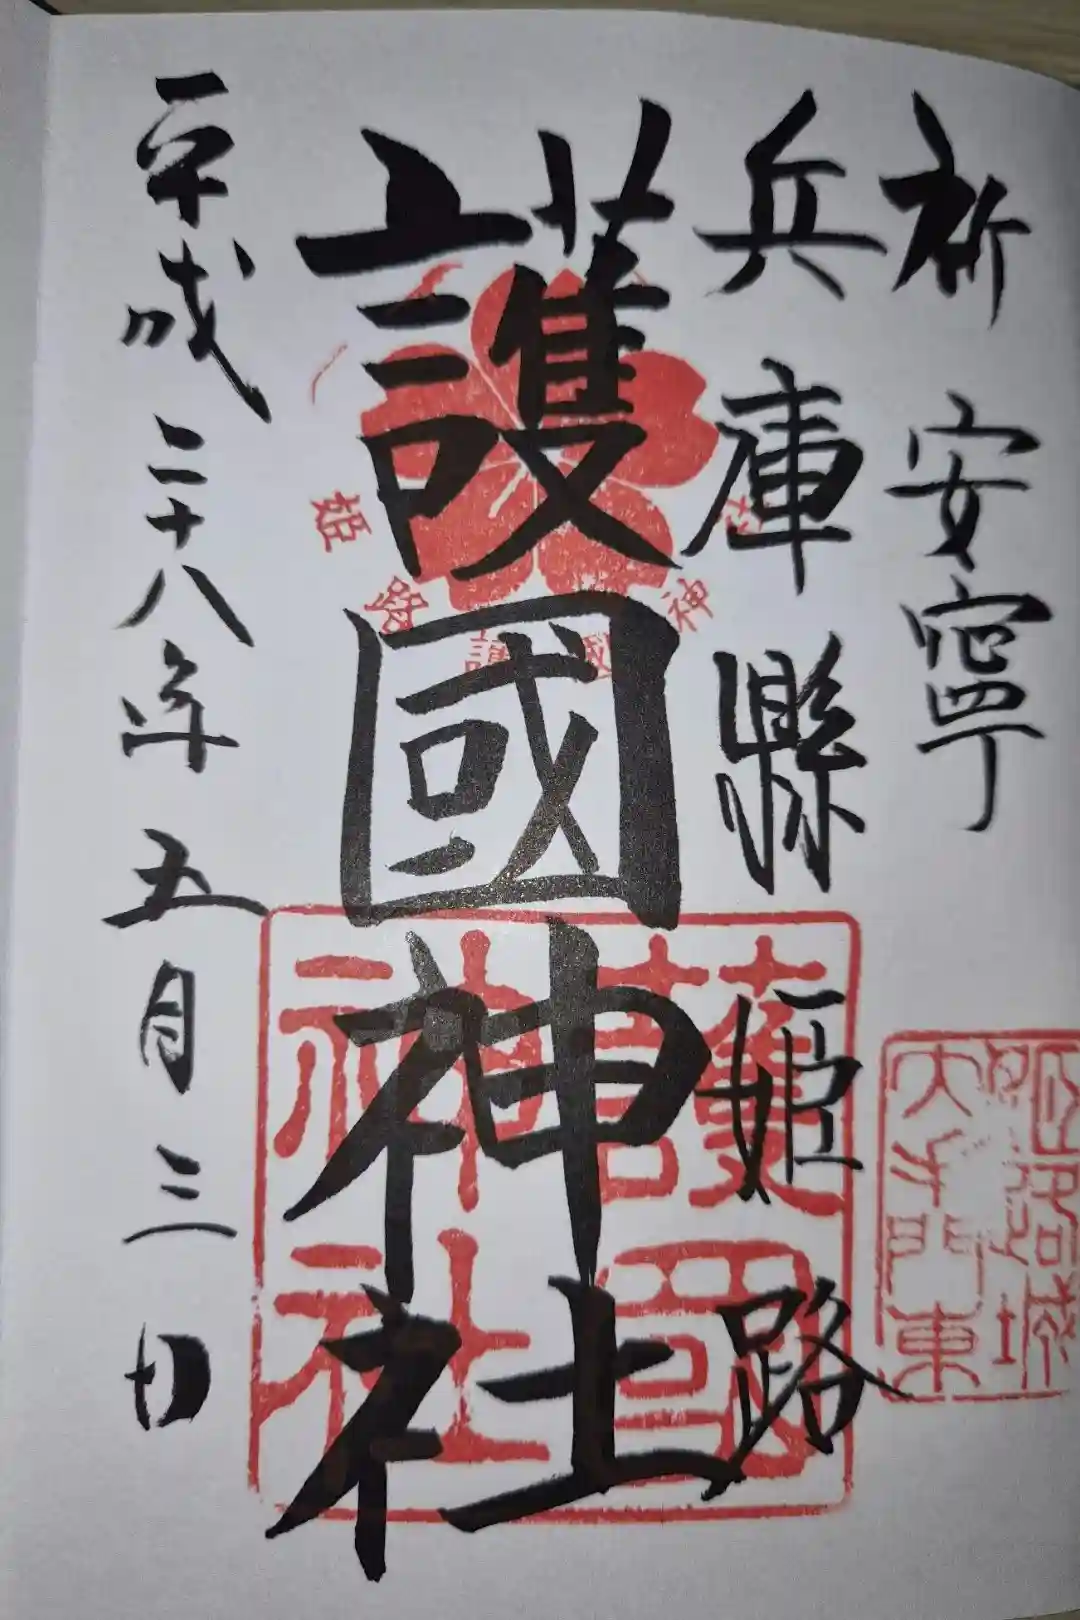 祈安寧
兵庫縣姫路
護國神社
平成二十八年五月三日
姫路護國神社
護國神社
姫路城
大手門東